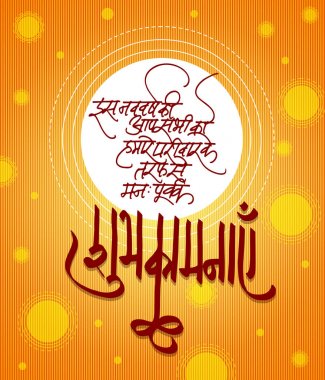 इस नववर्ष की
आप सभी को
हमारे परिवार के
तरफ से
मनः पूर्वक
शुभकामनाएँ